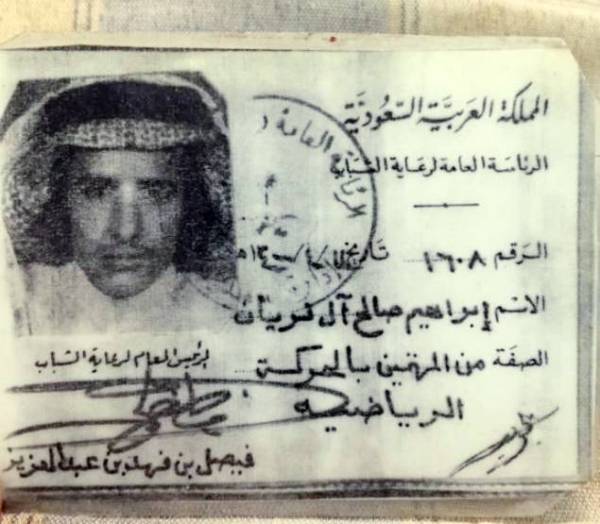 المملكة العربية السعودية
الرئاسة العامة لرعاية الشباب
الرقم ١٦٠٨ تاريخ
الاسم إبراهيم صالح آل
الصفة من المهتمين بالحركة
الرياضية
الرئيس العام لرعاية الشباب
فيصل بن فهد بن عبد العزيز
الرئاسة العامة